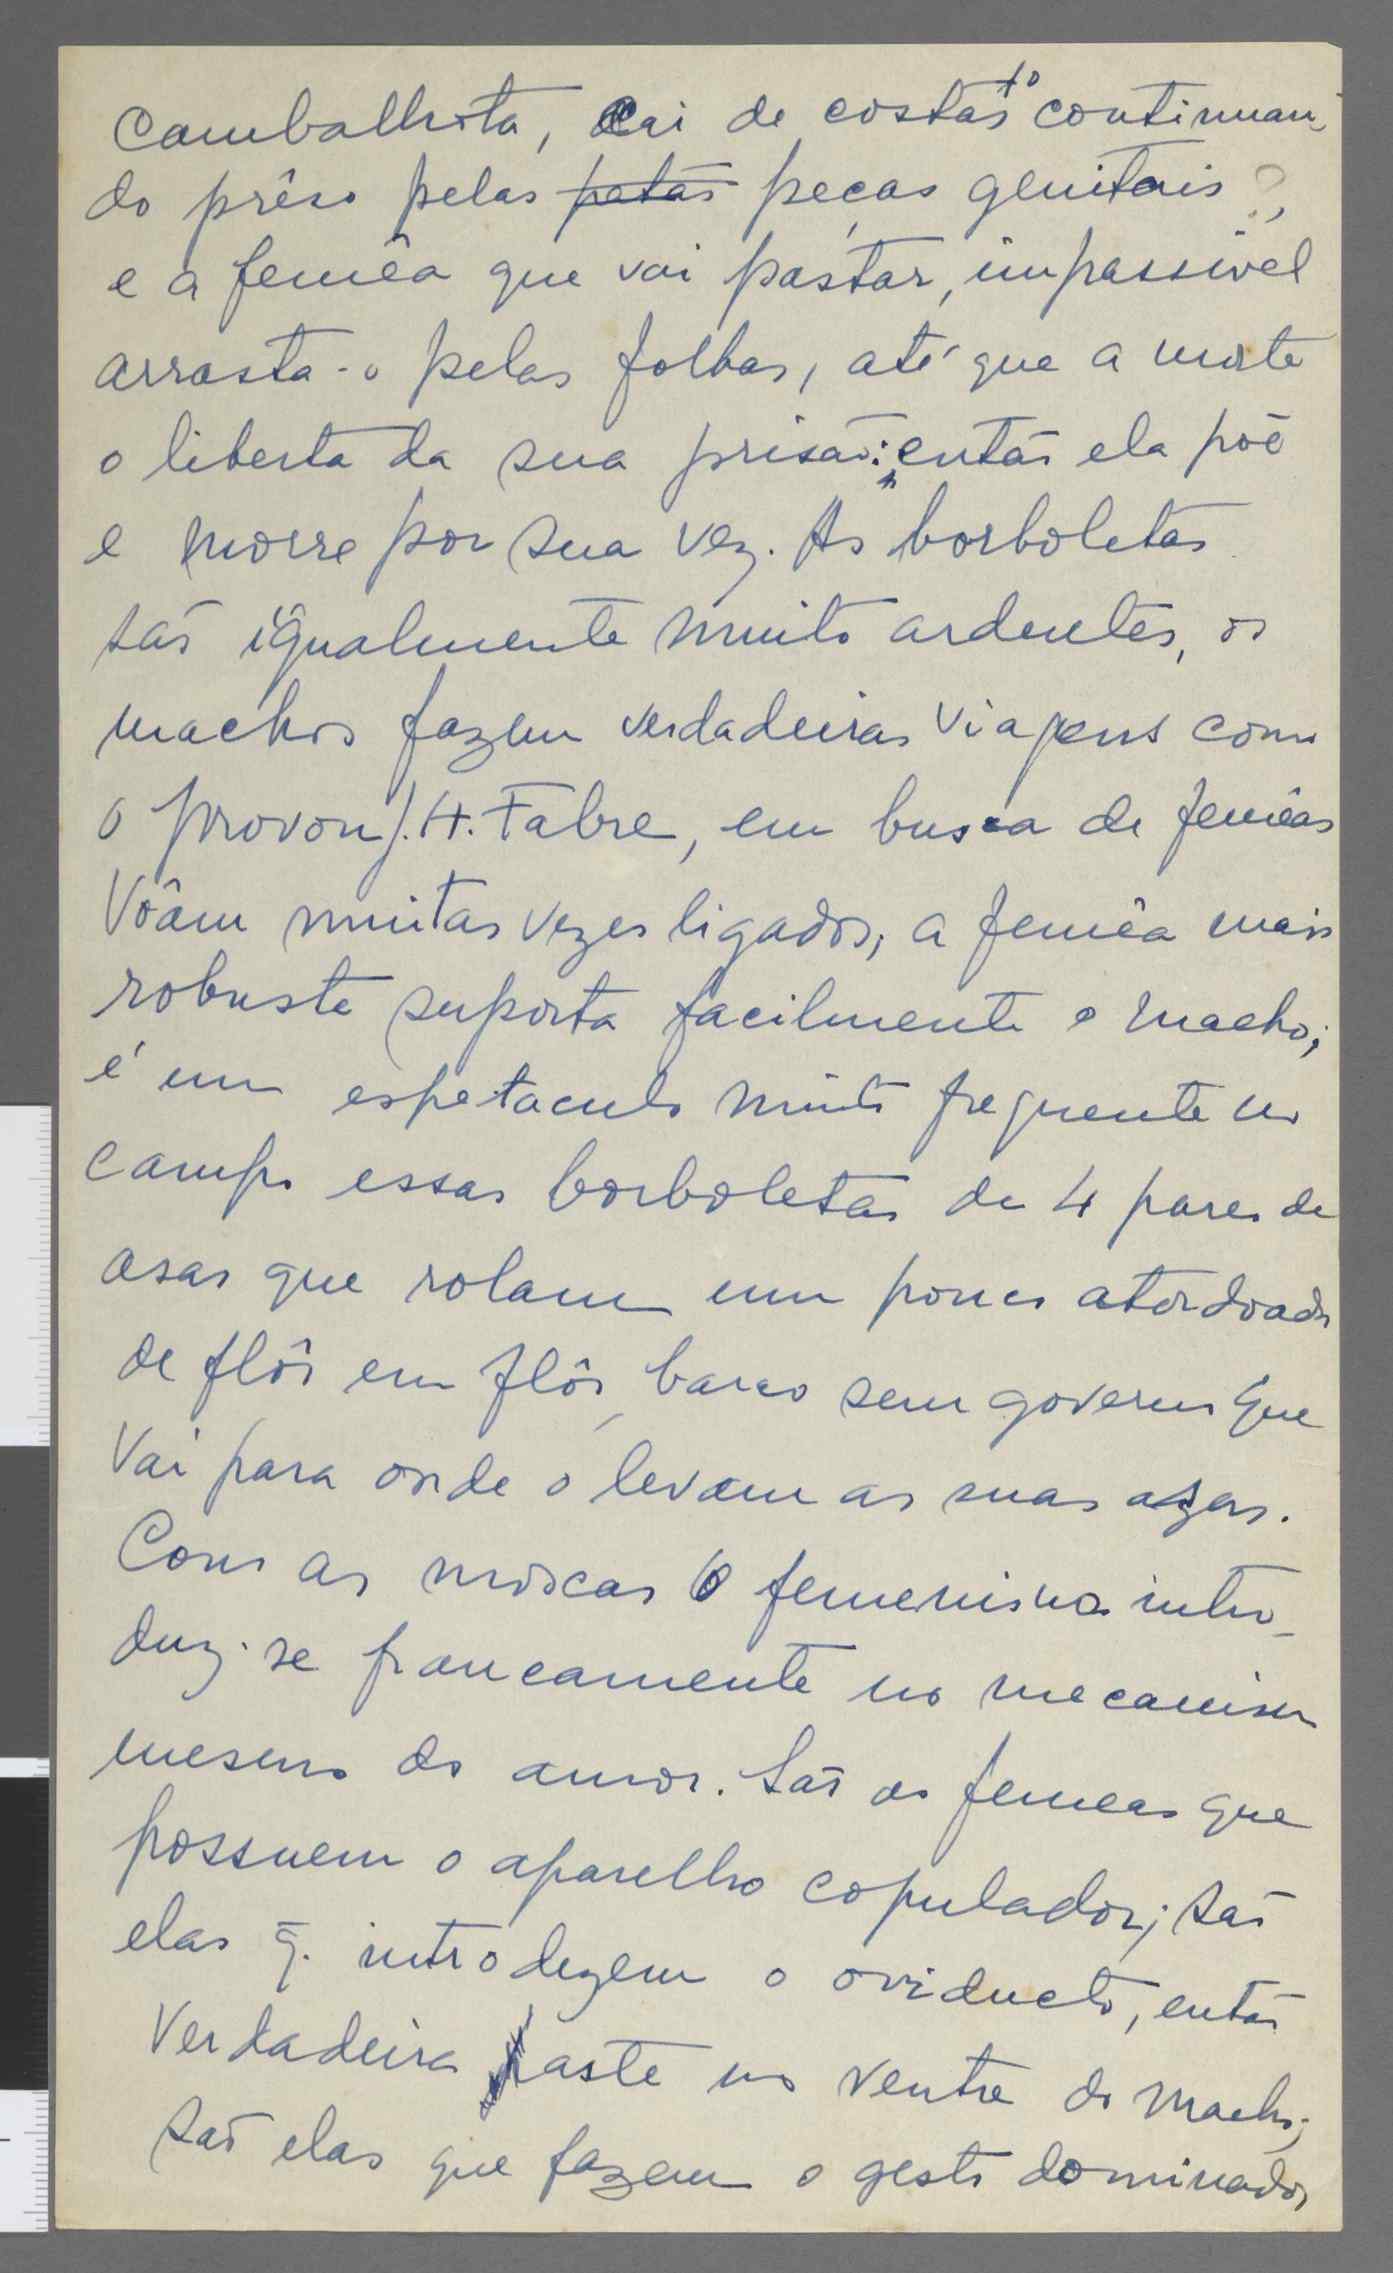 cambalhota, cai de costas continuan-
do prêso pelas patas peças genitais,
e a femêa que vai pastar, impassivel
arrasta-o pelas folhas, até que a morte
o liberta da sua prisão; então ela põe
e morre por sua vez. As borboletas
são igualmente muito ardentes, os
machos fazem verdadeiras viagens como
o provou J. H. Fabre, em busca de femêas
Vôam muitas vezes ligados; a femêa mais
robusta suporta facilmente o macho;
é um espetaculo muito frequente no
campo essas borboletas de 4 pares de
asas que rolam um pouco atordoadas
de flôr em flôr, barco sem governo que
Vai para onde o levam as suas azas.
Com as moscas o femenismo intro-
duz-se francamente no mecanismo
mesmo do amor. São as femeas que
possuem o aparelho copulador; são
elas q. introduzem o oviducto, então
Verdadeira haste no ventre do macho;
São elas que fazem o gesto dominador